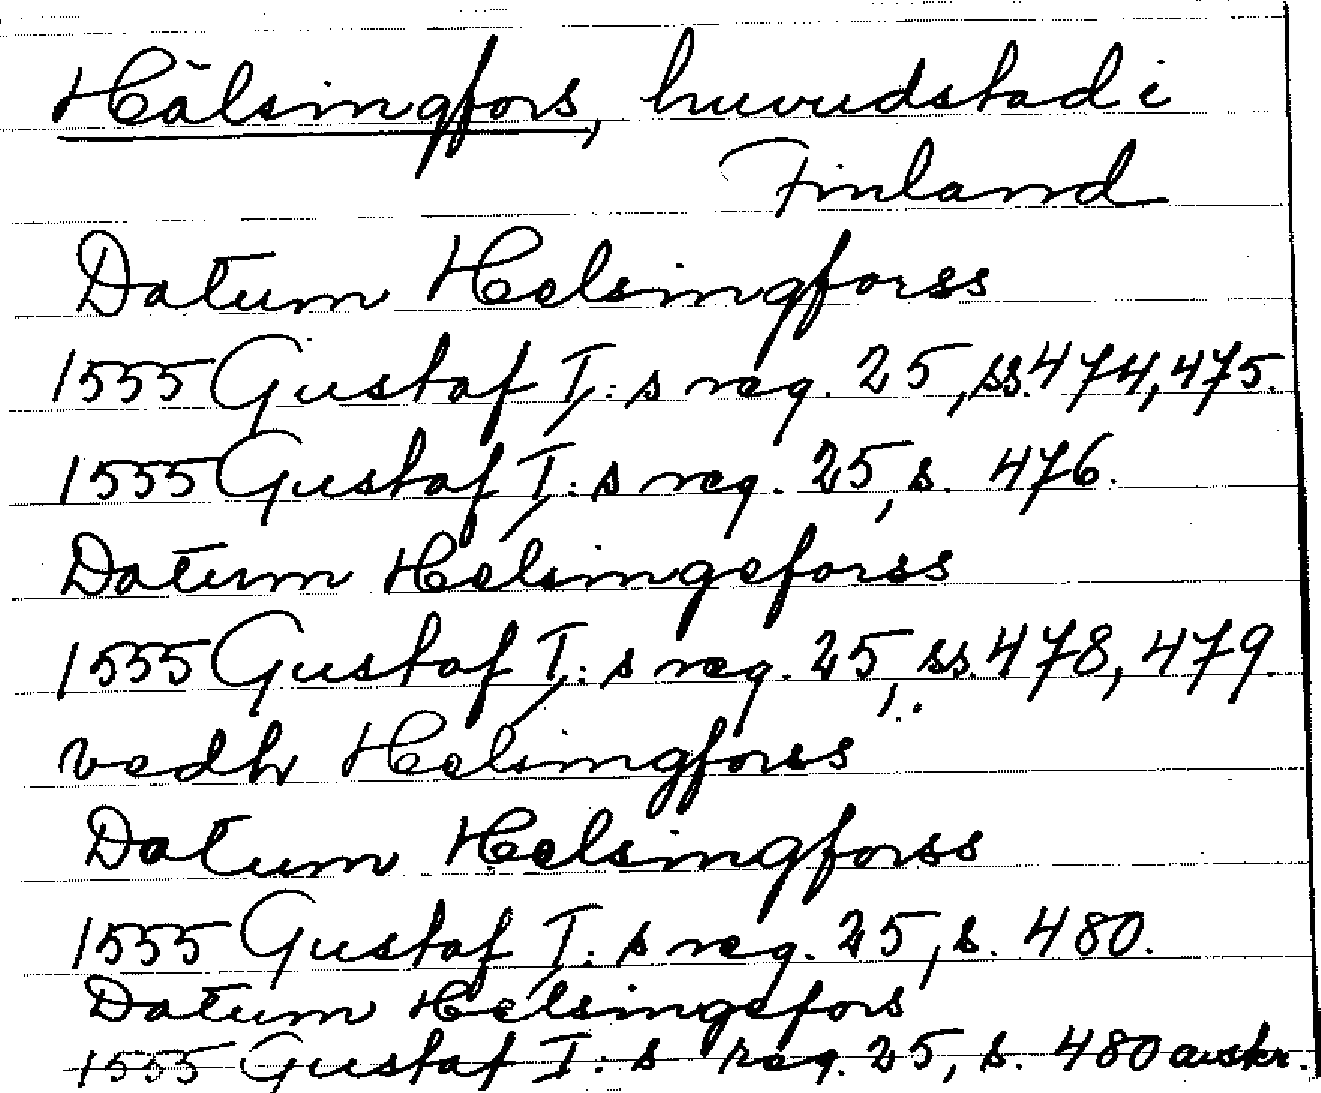 Hälsingfors, huvudstad i
Finland
Datum Helsingforss
1555 Gustaf I:s reg. 25, ss. 474, 475.
1555 Gustaf I:s reg. 25, s. 476.
Datum Helsingeforss
1555 Gustaf I:s reg. 25, ss. 478, 479
vedh Helsingforss
Datum Helsingforss
1555 Gustaf I:s reg. 25, s. 480.
Datum Helsingefors
1555 Gustaf I:s reg. 25, s. 480 avskr.